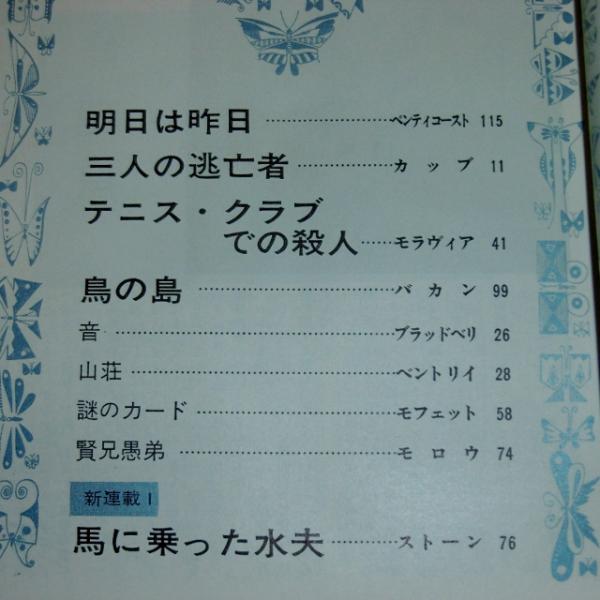 明日は昨日 ペンティコースト 115
三人の逃亡者 カップ 11
テニス・クラブ
での殺人 モラヴィア 41
鳥の島 バカン 99
音 ブラッドベリ 26
山荘 ベントリイ 28
謎のカード モフェット 58
賢兄愚弟 モロウ 74
新連載I
馬に乗った水夫 ストーン 76